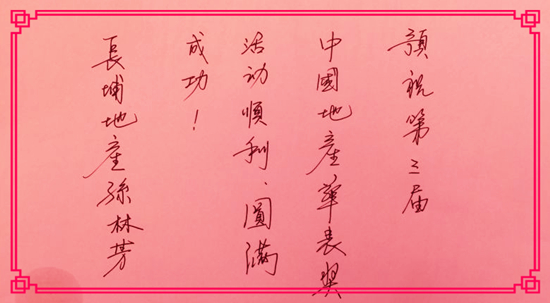 預祝第三届
中國地產華表奬
活动順利、圓滿
成功！
長埔地產孫林芳